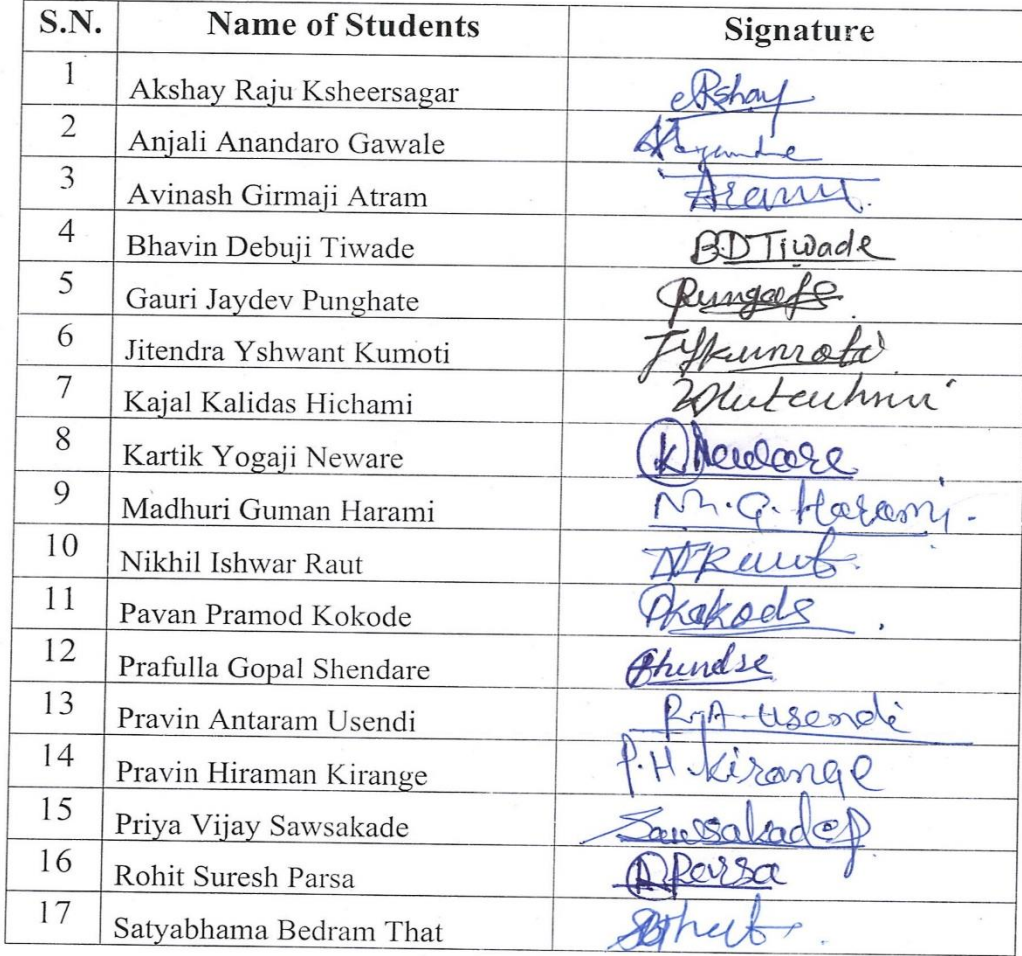 S.N. Name of Students Signature
1 Akshay Raju Ksheersagar Akshay
2 Anjali Anandaro Gawale
3 Avinash Girmaji Atram
4 Bhavin Debuji Tiwade BD Tiwade
5 Gauri Jaydev Punghate
6 Jitendra Yshwant Kumoti
7 Kajal Kalidas Hichami
8 Kartik Yogaji Neware K Neware
9 Madhuri Guman Harami M.G. Harami
10 Nikhil Ishwar Raut NRaut
11 Pavan Pramod Kokode Pkokode
12 Prafulla Gopal Shendare
13 Pravin Antaram Usendi P.A. Usendi
14 Pravin Hiraman Kirange P.H. Kirange
15 Priya Vijay Sawsakade Sawsakade P
16 Rohit Suresh Parsa
17 Satyabhama Bedram That